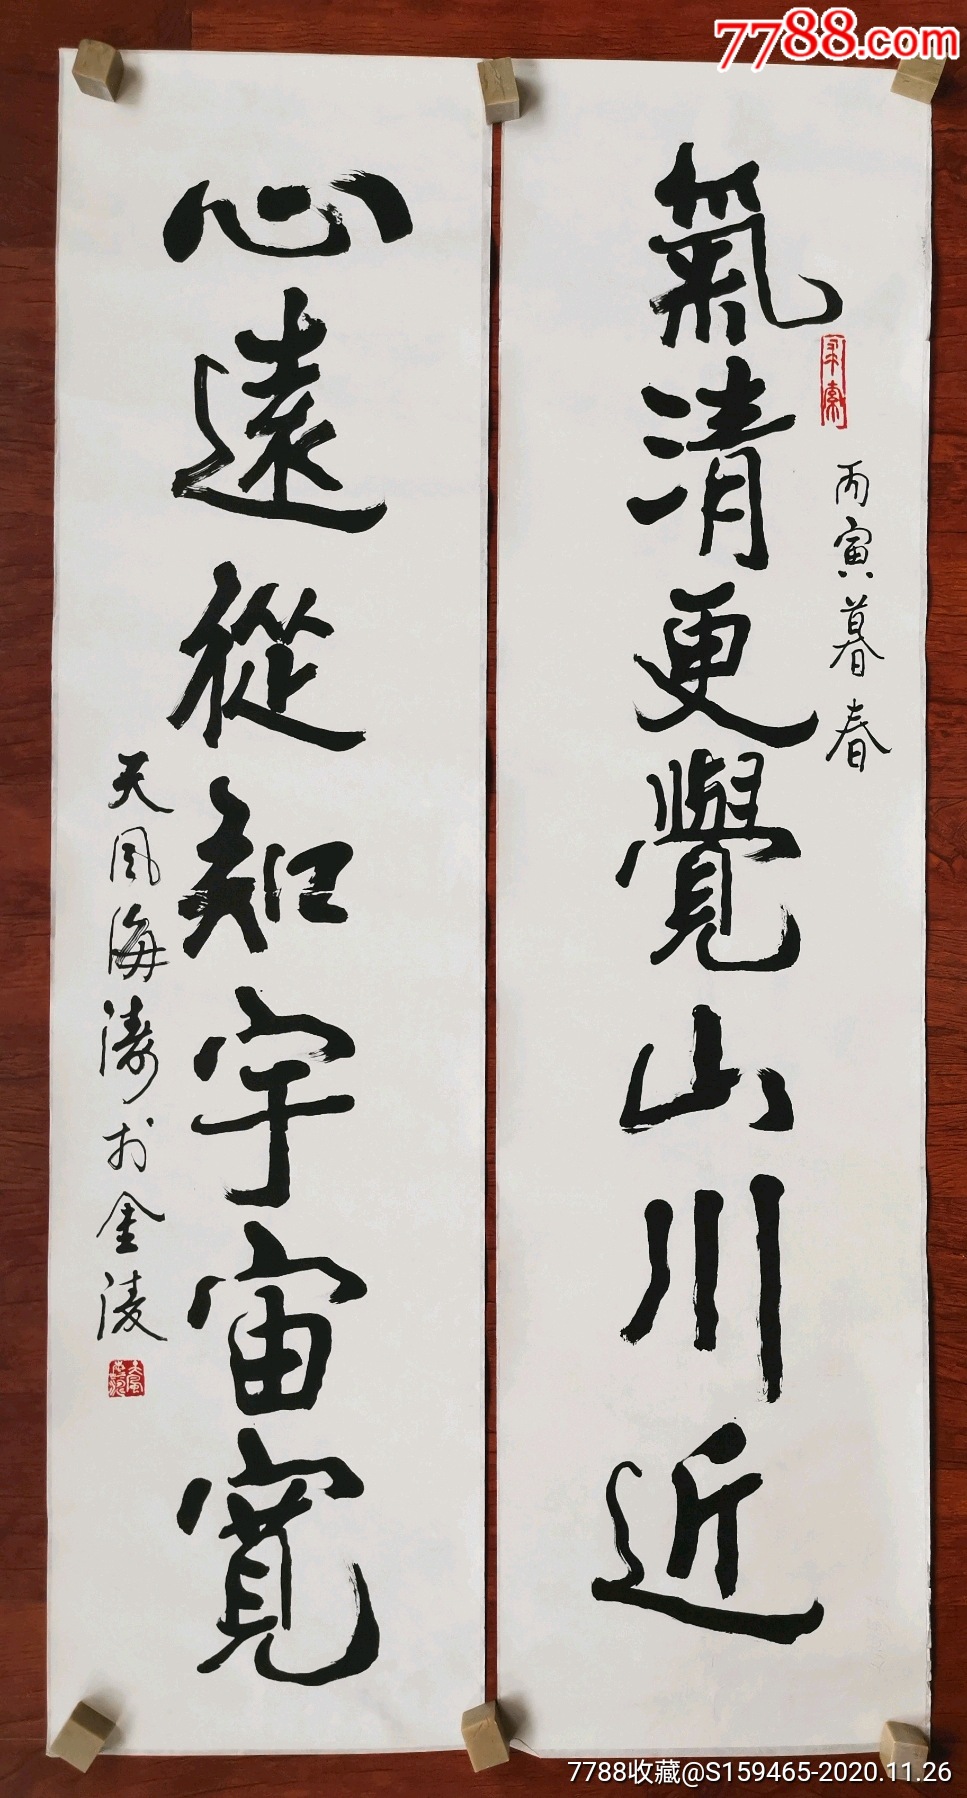 7788.com
氣清更覺山川近
丙寅暮春
心遠從知宇宙寬
天風海濤於金陵
7788收藏@S159465-2020.11.26